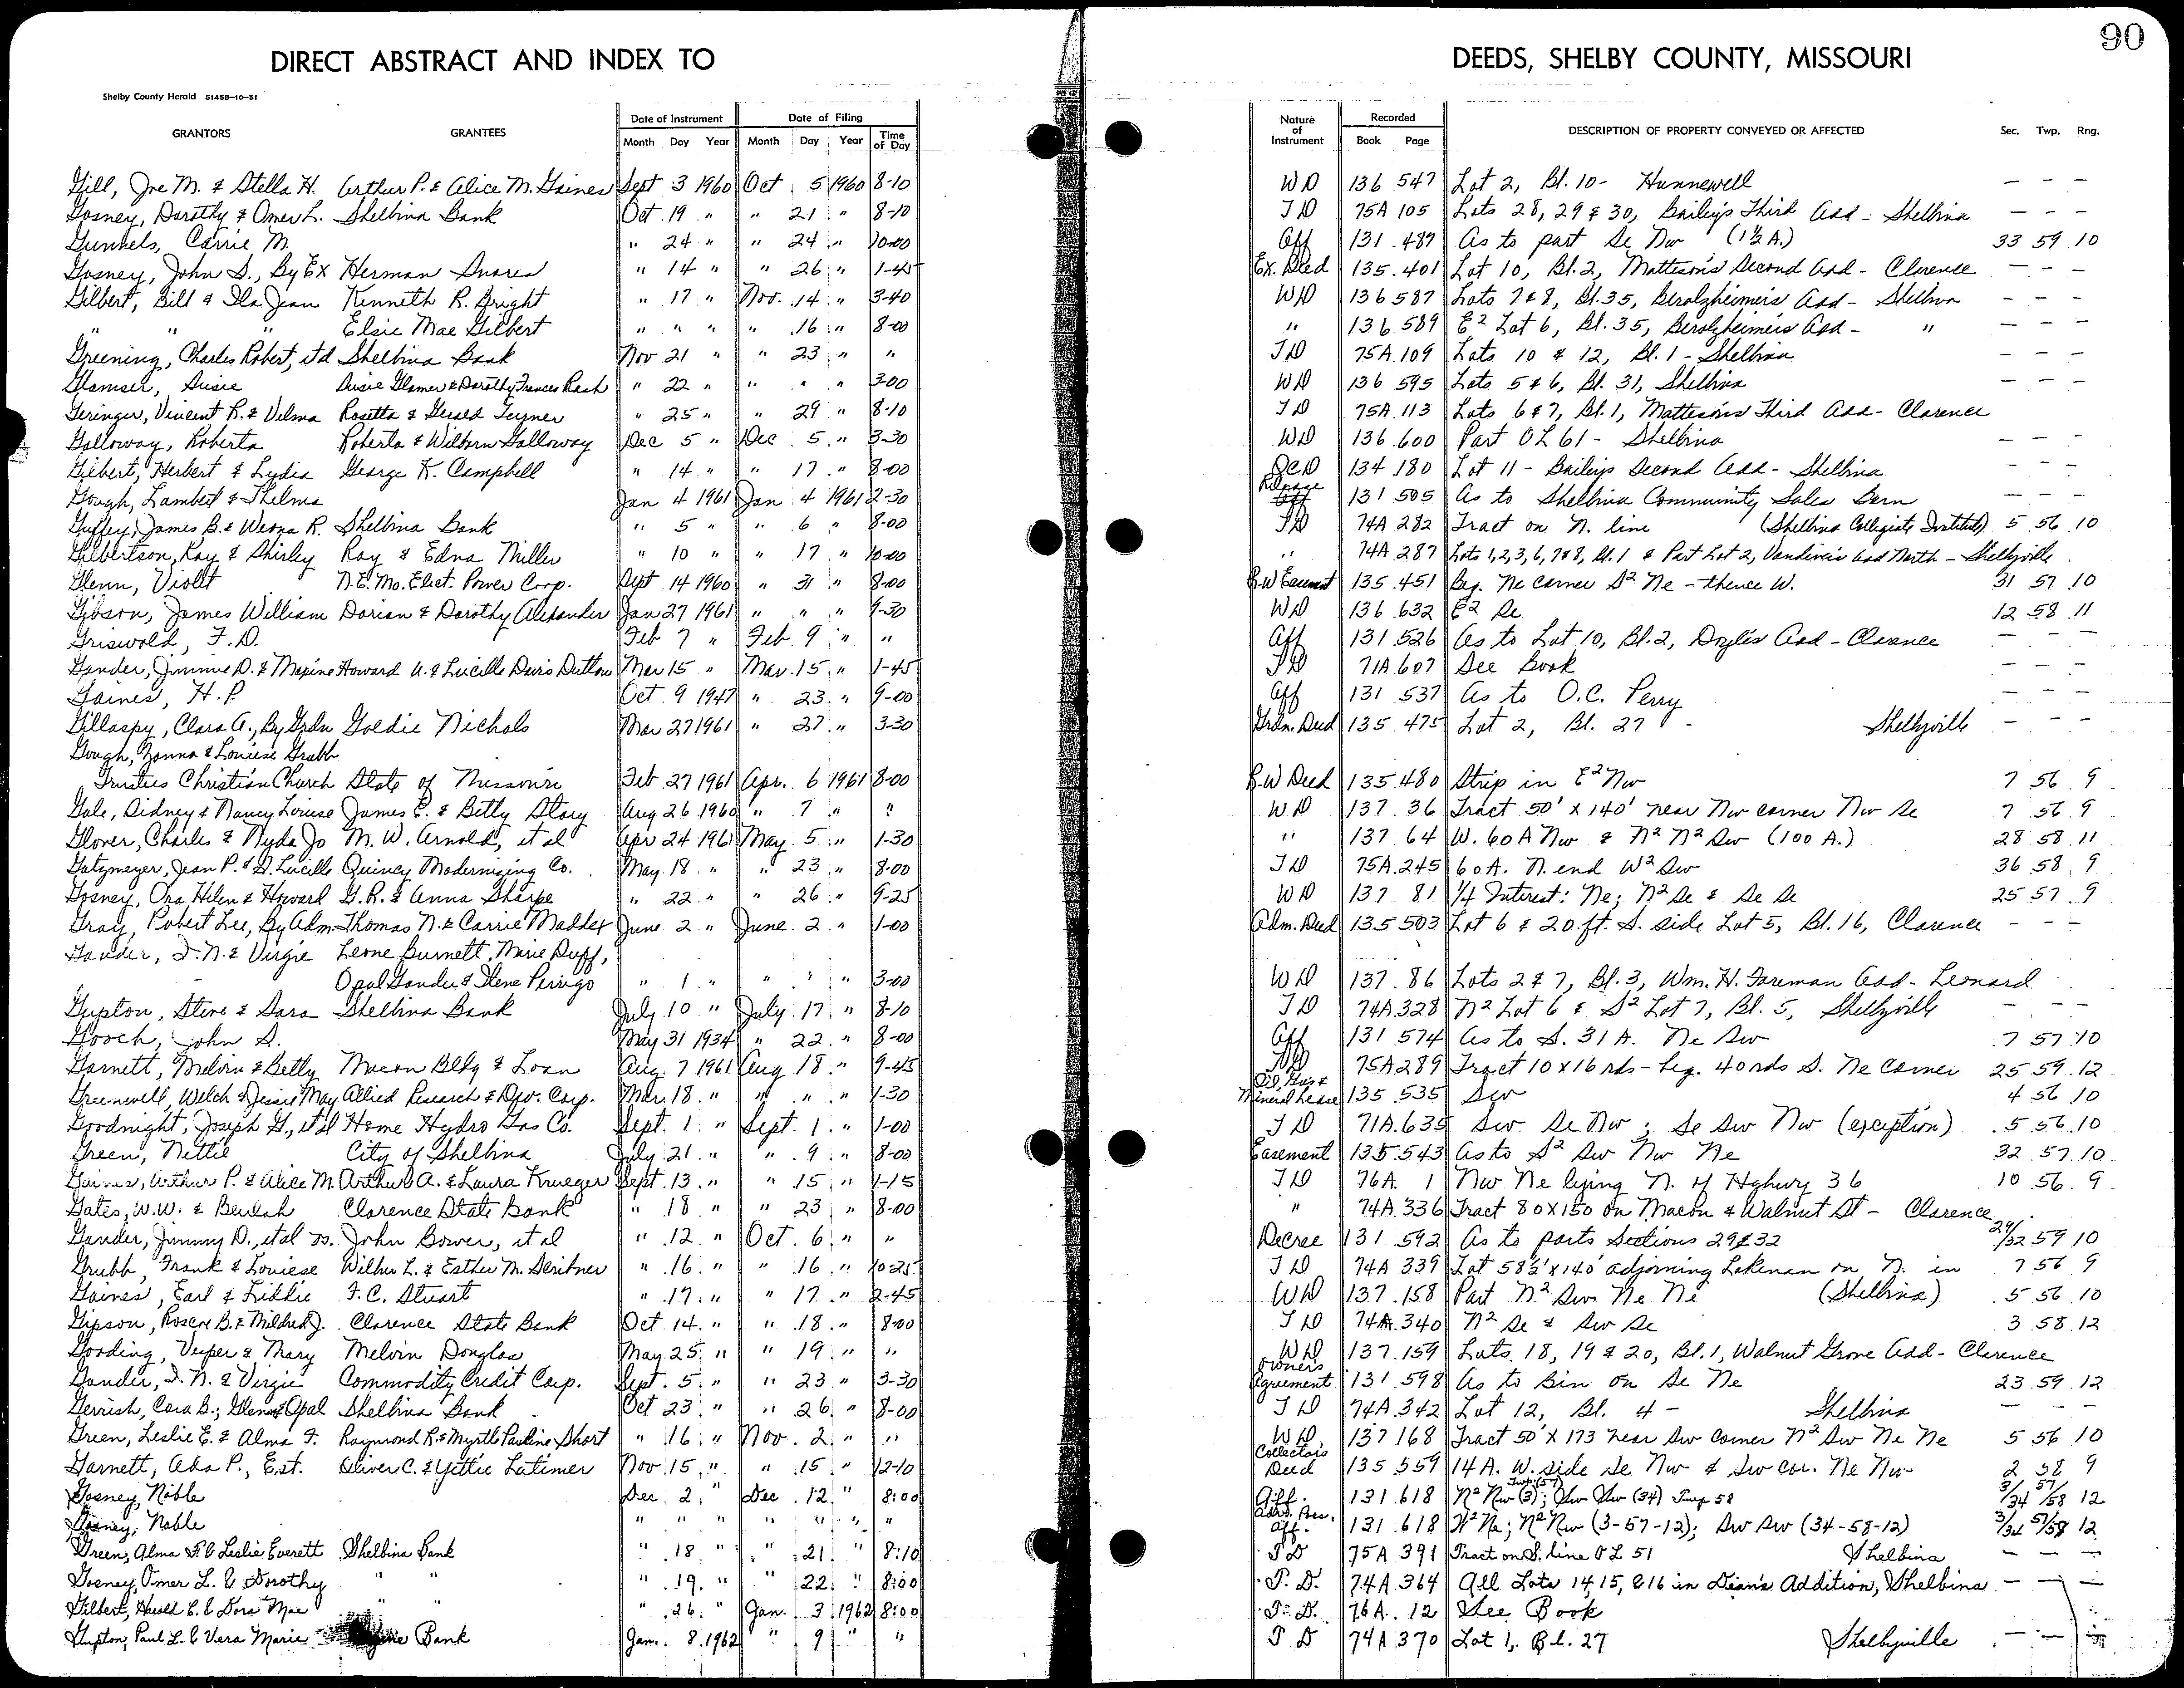 90
DIRECT ABSTRACT AND INDEX TO DEEDS, SHELBY COUNTY, MISSOURI
Shelby County Herald 5145B-10-51
GRANTORS GRANTEES Date of Instrument Date of Filing Nature of Instrument Recorded DESCRIPTION OF PROPERTY CONVEYED OR AFFECTED Sec. Twp. Rng.
Month Day Year Month Day Year Time of Day Book Page
Gill, Joe M. & Stella H. Arthur P. & Alice M. Gaines Sept 3 1960 Oct 5 1960 8-10 WD 136 547 Lot 2, Bl. 10 - Hunnewell — — —
Gosney, Dorothy & Omer L. Shelbina Bank Oct 19 " " 21 " 8-10 TD 75A 105 Lots 28, 29 & 30, Bailey's Third Add - Shelbina — — —
Gunnels, Carrie M. " 24 " " 24 " 10-00 Aff 131 487 As to part Se Nw (1½ A.) 33 59 10
Gosney, John S., By Ex Herman " 14 " " 26 " 1-45 Ex. Deed 135 401 Lot 10, Bl. 2, Matteson's Second Add - Clarence — — —
Gilbert, Bill & Ila Jean Kenneth R. Bright " 17 " Nov. 14 " 3-40 WD 136 587 Lots 7 & 8, Bl. 35, Berolzheimer's Add - Shelbina — — —
" " " Elsie Mae Gilbert " " " " 16 " 8-00 " 136 589 E² Lot 6, Bl. 35, Berolzheimer's Add - " — — —
Greening, Charles Robert, etal Shelbina Bank Nov 21 " " 23 " " TD 75A 109 Lots 10 & 12, Bl. 1 - Shelbina — — —
Glamser, Susie Susie Glamser & Dorothy Frances Rash " 22 " " " " 3-00 WD 136 595 Lots 5 & 6, Bl. 31, Shelbina — — —
Geringer, Vincent R. & Velma Rosetta & Gerald " 25 " " 29 " 8-10 TD 75A 113 Lots 6 & 7, Bl. 1, Matteson's Third Add - Clarence
Galloway, Roberta Roberta & Wilburn Galloway Dec 5 " Dec 5 " 3-30 WD 136 600 Part OL 61 - Shelbina — — —
Gilbert, Herbert & Lydia George K. Campbell " 14 " " 17 " 8-00 QCD 134 180 Lot 11 - Bailey's Second Add - Shelbina — — —
Gough, Lambert & Thelma Jan 4 1961 Jan 4 1961 2-30 Release 131 505 As to Shelbina Community Sales Barn — — —
Guffey, James B. & Weona R. Shelbina Bank " 5 " " 6 " 8-00 TD 74A 282 Tract on N. line (Shelbina Collegiate Institute) 5 56 10
Gilbertson, Kay & Shirley Ray & Edna Miller " 10 " " 17 " 10-00 " 74A 287 Lots 1, 2, 3, 6, 7 & 8, Bl. 1 & Part Lot 2, Vandiver's Add North - Shelbyville
Glenn, Violet N.E. Mo. Elect. Power Coop. Sept 14 1960 " 31 " 8-00 R-W Easemt 135 451 Beg. Ne corner S² Ne - thence W. 31 57 10
Gibson, James William Dorian & Dorothy Alexander Jan 27 1961 " " " 9-30 WD 136 632 E² Se 12 58 11
Griswold, F.D. Feb 7 " Feb. 9 " " Aff 131 526 As to Lot 10, Bl. 2, Doyle's Add - Clarence — — —
Gander, Jimmie D. & Maxine Howard U. & Lucille Davis Dutton Mar 15 " Mar. 15 " 1-45 TD 71A 607 See Book — — —
Gaines, H.P. Oct 9 1947 " 23 " 9-00 Aff 131 537 As to O.C. Perry — — —
Gillaspy, Clara A., By Grdn Goldie Nichols Mar 27 1961 " 27 " 3-30 Grdn. Deed 135 475 Lot 2, Bl. 27 - Shelbyville — — —
Gough, Zonna & Louiese Grubb
Trustees Christian Church State of Missouri Feb 27 1961 Apr. 6 1961 8-00 R-W Deed 135 480 Strip in E² Nw 7 56 9
Gale, Sidney & Nancy Louise James E. & Betty Story Aug 26 1960 " 7 " ? WD 137 36 Tract 50' x 140' near Nw corner Nw Se 7 56 9
Glover, Charles & Nyda Jo M. W. Arnold, et al Apr 24 1961 May 5 " 1-30 " 137 64 W. 60 A Nw & N² N² Sw (100 A.) 28 58 11
Gutzmeyer, Jean P. & D. Lucille Quincy Modernizing Co. May 18 " " 23 " 8-00 TD 75A 245 60A. N. end W² Sw 36 58 9
Gosney, Ora Helen & Howard G.R. & Anna Sharpe " 22 " " 26 " 9-25 WD 137 81 1/4 Interest: Ne; N² Se & Se Se 25 57 9
Gray, Robert Lee, By Adm Thomas N. & Carrie Maddex June 2 " June 2 " 1-00 Adm. Deed 135 503 Lot 6 & 20 ft. S. side Lot 5, Bl. 16, Clarence — — —
Gander, I. N. & Virgie Leone Burnett, Marie Duff,
Opal Gander & Ilene Perrigo " 1 " " " " 3-00 WD 137 86 Lots 2 & 7, Bl. 3, Wm. H. Foreman Add - Leonard
Gupton, Steve & Sara Shelbina Bank July 10 " July 17 " 8-10 TD 74A 328 N² Lot 6 & S² Lot 7, Bl. 5, Shelbyville — — —
Gooch, John S. May 31 1934 " 22 " 8-00 Aff 131 574 As to S. 31 A. Ne Sw 7 57 10
Garnett, Melvin & Betty Macon Bldg & Loan Aug. 7 1961 Aug 18 " 9-45 TD 75A 289 Tract 10 x 16 rds - beg. 40 rds S. Ne Corner 25 59 12
Greenwell, Welch & Jessie May Allied Research & Dev. Corp. Mar. 18 " " " " 1-30 Oil, Gas & Mineral Lease 135 535 Sw 4 56 10
Goodnight, Joseph G., et al Home Hydro Gas Co. Sept. 1 " Sept. 1 " 1-00 TD 71A 635 Sw Se Nw; Se Sw Nw (exception) 5 56 10
Green, Nettie City of Shelbina July 21 " " 9 " 8-00 Easement 135 543 As to S² Sw Nw Ne 32 57 10
Gaines, Arthur P. & Alice M. Arthur A. & Laura Krueger Sept. 13 " " 15 " 1-15 TD 76A 1 Nw Ne lying N. of Highwy 36 10 56 9
Gates, W.W. & Beulah Clarence State Bank " 18 " " 23 " 8-00 " 74A 336 Tract 80 x 150 on Macon & Walnut St - Clarence
Gander, Jimmy D., et al vs. John Bower, et al " 12 " Oct. 6 " " Decree 131 592 As to parts Sections 29 & 32 29/32 59 10
Grubb, Frank & Louiese Wilbur L. & Esther M. Scribner " 16 " " 16 " 10-25 TD 74A 339 Lot 58½' x 140' adjoining Lakenan on N. in 7 56 9
Gaines, Earl & Liddie F. C. Stuart " 17 " " 17 " 2-45 WD 137 158 Part N² Sw Ne Ne (Shelbina) 5 56 10
Gipson, Roscoe B. & Mildred J. Clarence State Bank Oct 14 " " 18 " 8-00 TD 74A 340 N² Se & Sw Se 3 58 12
Gooding, Vesper & Mary Melvin Douglas May 25 " " 19 " " WD 137 159 Lots 18, 19 & 20, Bl. 1, Walnut Grove Add - Clarence
Gander, I. N. & Virgie Commodity Credit Corp. Sept. 5 " " 23 " 3-30 Owners Agreement 131 598 As to bin on Se Ne 23 59 12
Gerrish, Cora B.; Glenn & Opal Shelbina Bank Oct 23 " " 26 " 8-00 TD 74A 342 Lot 12, Bl. 4 - Shelbina — — —
Green, Leslie E. & Alma F. Raymond R. & Myrtle Pauline Short " 16 " Nov. 2 " " WD 137 168 Tract 50' x 173 near Sw corner N² Sw Ne Ne 5 56 10
Garnett, Ada P., Est. Oliver C. & Latimer Nov 15 " " 15 " 12-10 Collector's Deed 135 559 14 A. W. side Se Nw & Sw cor. Ne Nw 2 58 9
Gosney, Noble Dec. 2 " Dec. 12 " 8:00 Aff. 131 618 N² Nw (3) Twp (57); Sw Sw (34) Twp 58 3/34 57/58 12
Gosney, Noble " " " " " " " Advd. Poss. Aff. 131 618 W² Ne; N² Nw (3-57-12); Sw Sw (34-58-12) 3/34 57/58 12
Green, Alma F. & Leslie Everett Shelbina Bank " 18 " " 21 " 8:10 TD 75A 391 Tract on S. line OL 51 Shelbina — — —
Gosney, Omer L. & Dorothy " " " 19 " " 22 " 8:00 T.D. 74A 364 All Lots 14, 15, & 16 in Dean's Addition, Shelbina — — —
Gilbert, Harold E. & Dora Mae " " " 26 " Jan. 3 1962 8:00 T.D. 76A 12 See Book
Gupton, Paul L. & Vera Marie Bank Jan. 8 1962 " 9 " " TD 74A 370 Lot 1, Bl. 27 Shelbyville — — —